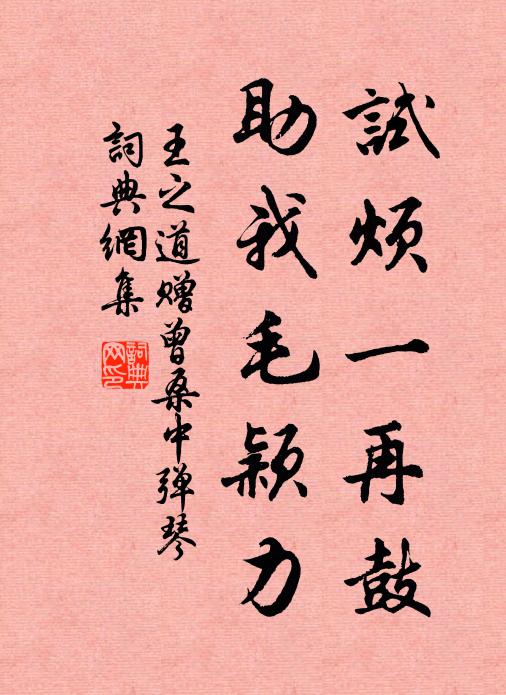 試煩一再鼓
助我毛颖力
王之道赠曾桑中弹琴
詞典網集
詞典网印